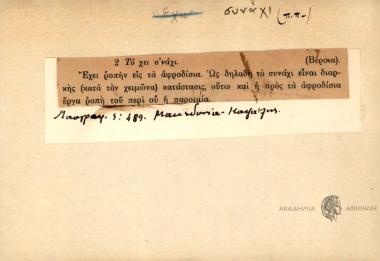 συνάχι (π.π.)
2 Τό χει σ'νάχι. (Βέροια).
Ἔχει ῥοπὴν εἰς τὰ ἀφροδίσια. Ὡς δηλαδὴ τὸ συνάχι εἶναι διαρ-
κὴς (κατὰ τὸν χειμῶνα) κατάστασις, οὕτω καὶ ἡ πρὸς τὰ ἀφροδίσια
ἔργα ῥοπὴ τοῦ περὶ οὗ ἡ παροιμία.
Λαογραφ. 489. Μακεδονία-
ΑΚΑΔΗΜΙΑ ΑΘΗΝΩΝ